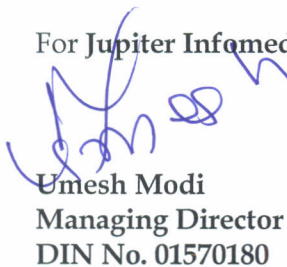 For Jupiter Infomed
Umesh Modi
Managing Director
DIN No. 01570180